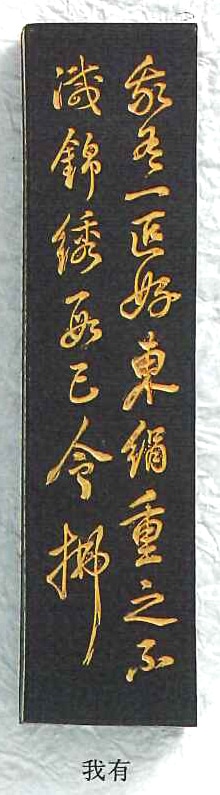 我有一匹好東絹重之不
減錦綉段已令拂
我有